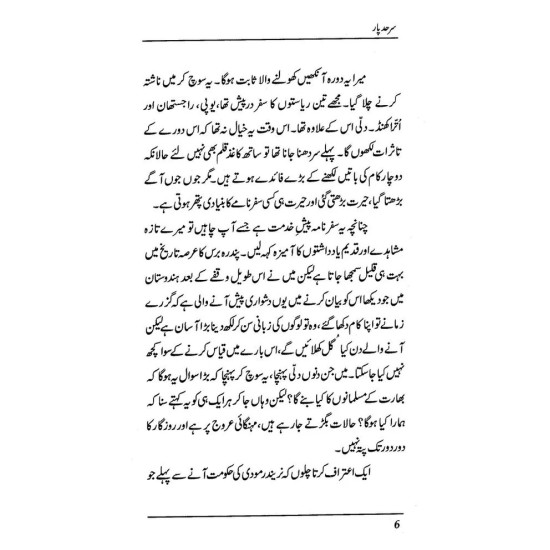 سرحد پار
میرا یہ دورہ آنکھیں کھولنے والا ثابت ہوگا۔ یہ سوچ کر میں ناشتہ
کرنے چلا گیا۔ مجھے تین ریاستوں کا سفر در پیش تھا، یو پی، راجستھان اور
اتراکھنڈ۔ دلّی اس کے علاوہ تھا۔ اس وقت یہ خیال نہ تھا کہ اس دورے کے
تاثرات لکھوں گا۔ پہلے سردھنا جانا تھا تو ساتھ کاغذ قلم بھی نہیں لئے حالانکہ
دو چار کام کی باتیں لکھنے کے بڑے فائدے ہوتے ہیں۔ مگر جوں جوں آگے
بڑھتا گیا، حیرت بڑھتی گئی اور حیرت ہی کسی سفرنامے کا بنیادی پتھر ہوتی ہے۔
چنانچہ یہ سفرنامہ پیشِ خدمت ہے جسے آپ چاہیں تو میرے تازہ
مشاہدے اور قدیم یادداشتوں کا آمیزہ کہہ لیں۔ پندرہ برس کا عرصہ تاریخ میں
بہت ہی قلیل سمجھا جاتا ہے لیکن میں نے اس طویل وقفے کے بعد ہندوستان
میں جو دیکھا اس کو بیان کرنے میں یوں دشواری پیش آنے والی ہے کہ گزرے
زمانے تو اپنا کام دکھا گئے، وہ تو لوگوں کی زبانی سن کر لکھ دینا بڑا آسان ہے لیکن
آنے والے دن کیا گل کھلائیں گے، اس بارے میں قیاس کرنے کے سوا کچھ
نہیں کیا جا سکتا۔ میں جن دنوں دلّی پہنچا، یہ سوچ کر پہنچا کہ بڑا سوال یہ ہوگا کہ
بھارت کے مسلمانوں کا کیا بنے گا؟ لیکن وہاں جا کر ہر ایک ہی کو یہ کہتے سنا کہ
ہمارا کیا ہوگا؟ حالات بگڑتے جا رہے ہیں، مہنگائی عروج پر ہے اور روزگار کا
دور دور تک پتہ نہیں۔
ایک اعتراف کرتا چلوں کہ نریندر مودی کی حکومت آنے سے پہلے جو
6